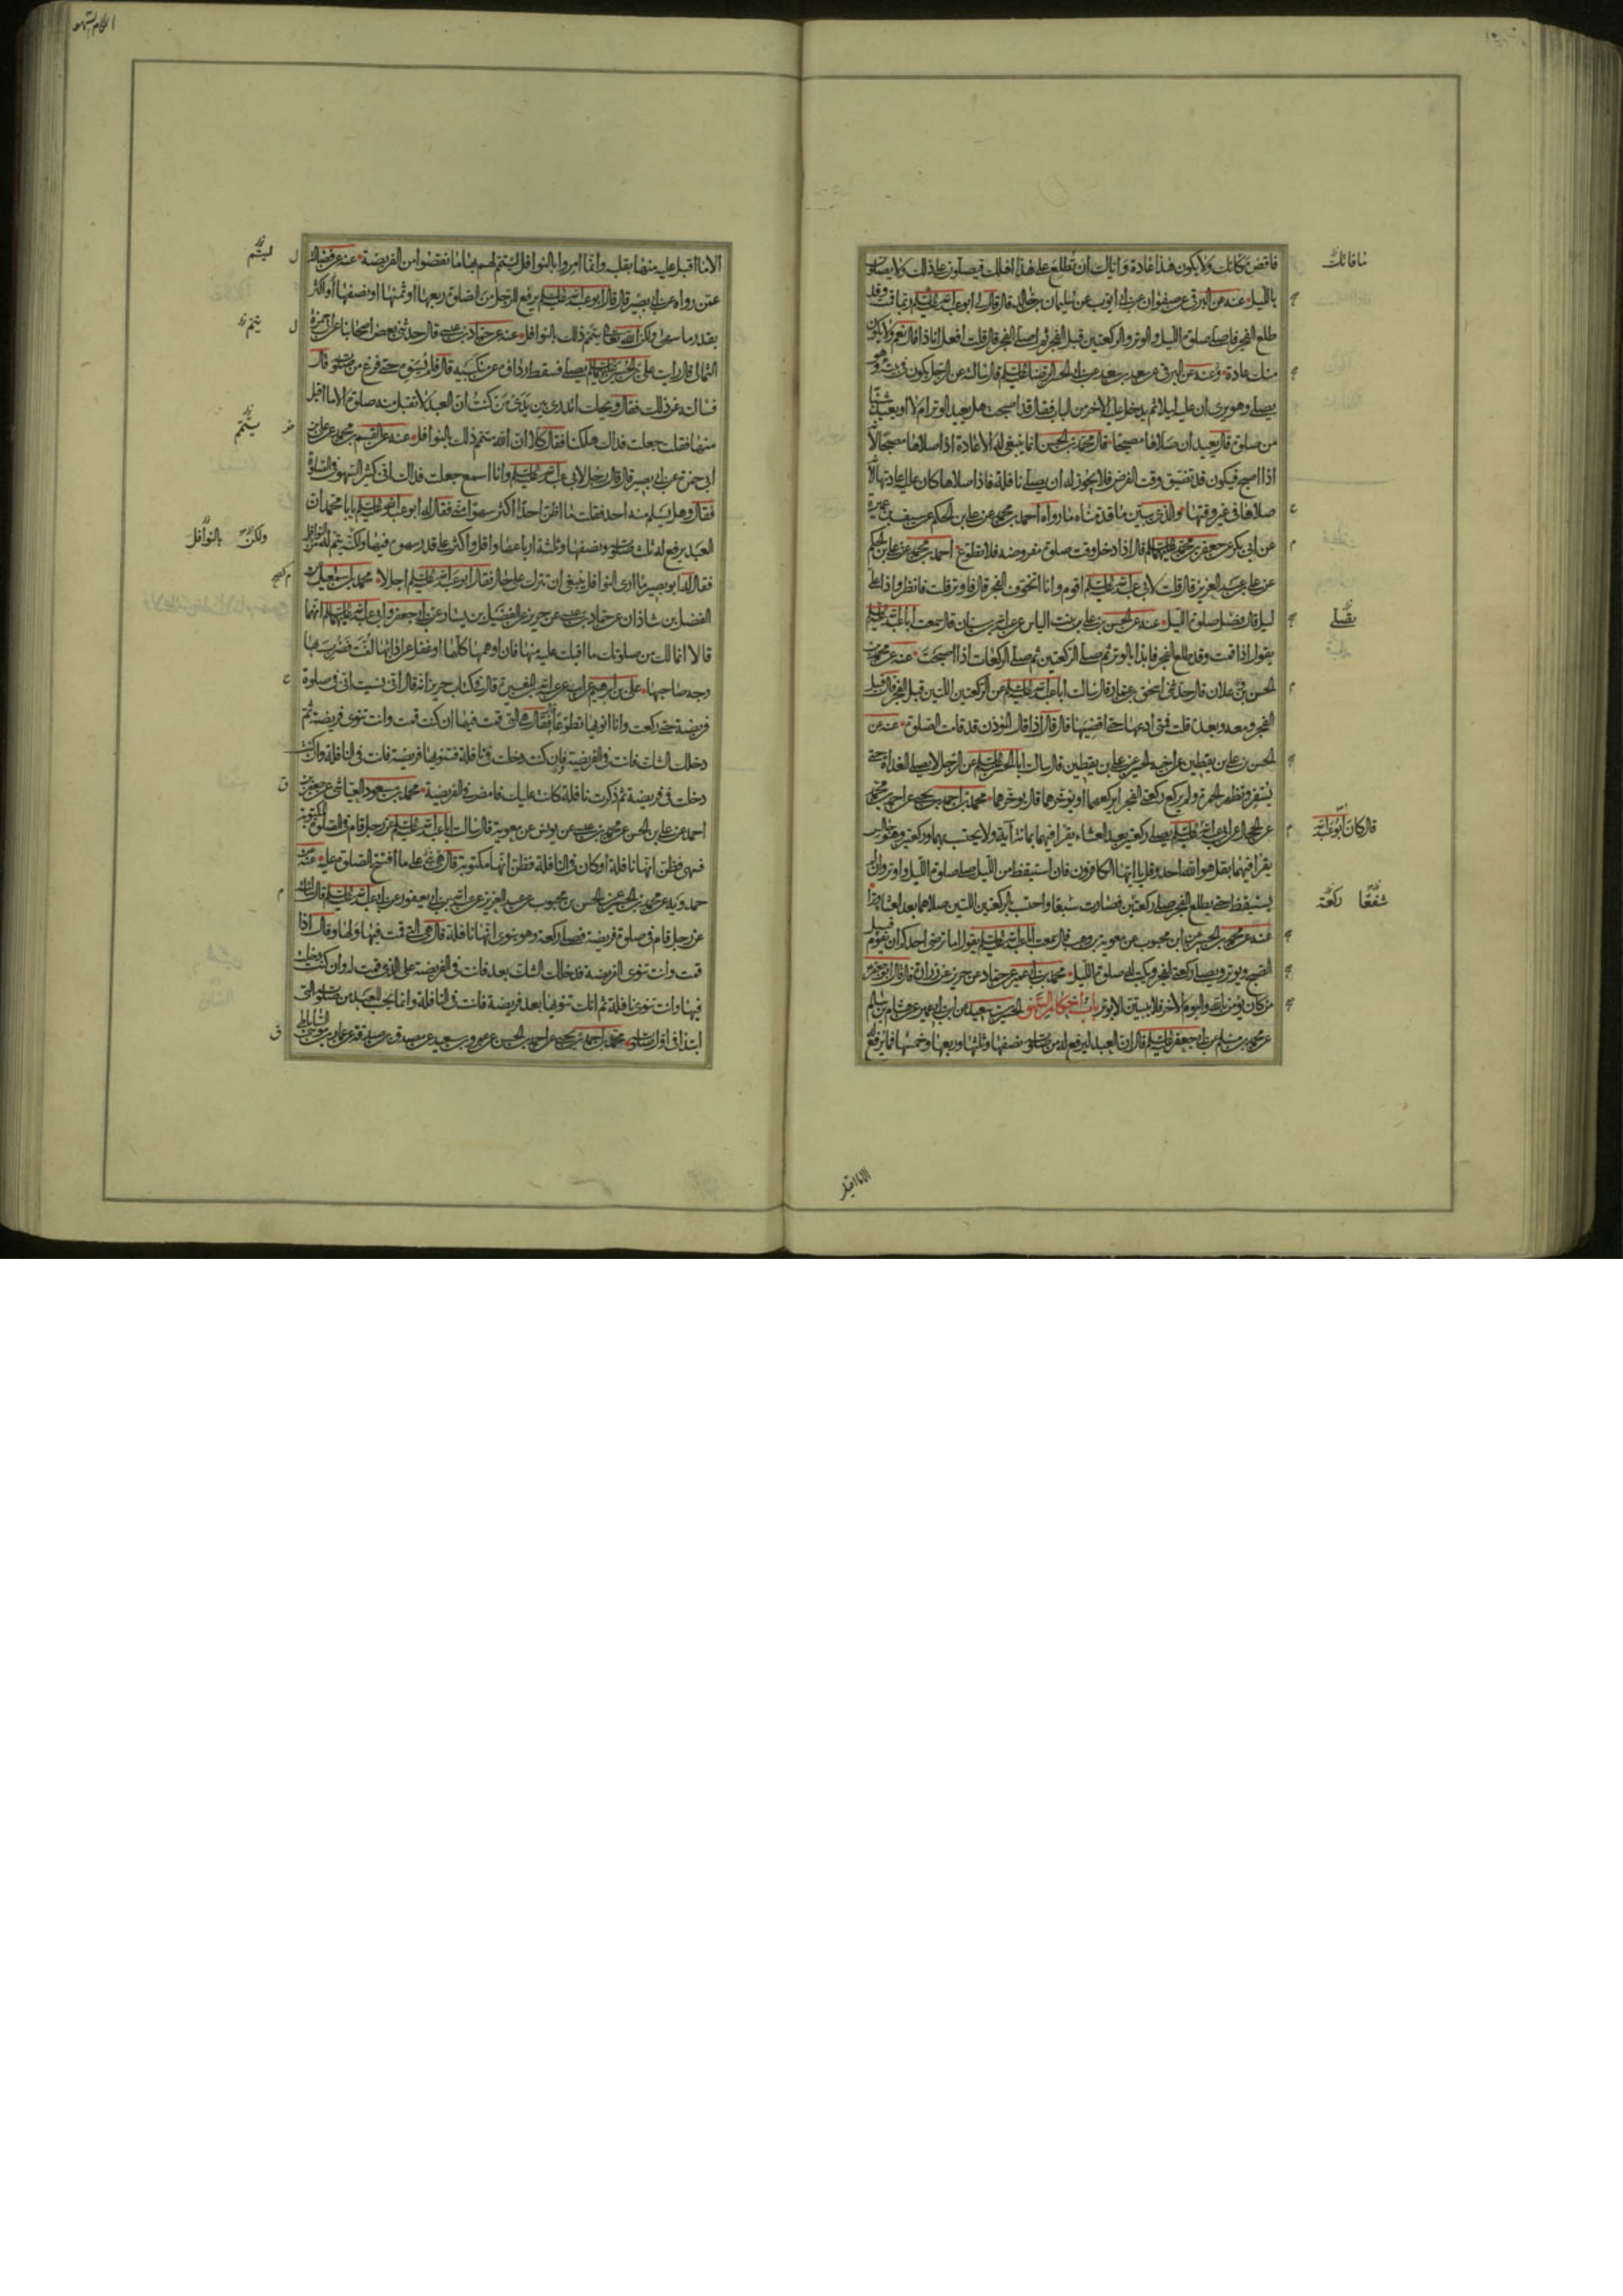 فاقض مافاتك ولا يكون هذا عادة واياك ان تطلع على هذا اهلك فيصلون على ذلك ولا يصلون
بالليل عنه عن البرقي عن صفوان عن ابي ايوب عن سليمان بن خالد قال قال لي ابو عبد الله عليه السلم ربما قمت وقد
طلع الفجر فاصلي صلوة الليل والوتر والركعتين قبل الفجر ثم اصلي الفجر قال قلت افعل انا ذا قال نعم ولا يكون
منك عادة وعنه عن البرقي عن سعد بن سعد عن ابي الحسن الرضا عليه السلم قال سالته عن الرجل يكون في بيته وهو
يصلي وهو يرى ان عليه ليلا ثم يدخل عليه الاخر من الباب فقال قد اصبحت هل يعيد الوتر ام لا او يعيد شيئا
من صلوته قال يعيد ان صلاها مصبحا قال محمد بن الحسن انما ينبغي له الاعادة اذا صلاها مصبحا لانه
اذا اصبح فيكون قد تضيق وقت الفرض فلا يجوز له ان يصلي نافلة فاذا صلاها كان عليه اعادتها لانه
صلاها في غير وقتها والذي يبين ما قدمناه ما رواه احمد بن محمد عن علي بن الحكم عن سيف بن عميرة
عن ابي بكر عن جعفر بن محمد عليهما السلم قال اذا دخل وقت صلوة مفروضه فلا تطوع احمد بن محمد عن علي بن الحكم
عن علي بن عبد العزيز قال قلت لابي عبد الله عليه السلم اقوم وانا اتخوف الفجر قال فاوتر قلت فانظر واذا علي
ليل قال فصل صلوة الليل عنه عن الحسن بن علي بن بنت الياس عن عبد الله بن سنان قال سمعت ابا عبد الله عليه السلم
يقول اذا قمت وقد طلع الفجر فابدا بالوتر ثم صل الركعتين ثم صل الركعات اذا اصبحت عنه عن محمد بن
الحسن بن علان قال حدثني اسحق بن عمار قال سالت ابا عبد الله عليه السلم عن الركعتين اللتين قبل الفجر قال قبل
الفجر ومعه وبعده قلت فمتى ادعها حتى اقضيها قال قال اذا قال المؤذن قد قامت الصلوة عنه عن
الحسن بن علي بن يقطين عن اخيه الحسين عن علي بن يقطين قال سالت ابا الحسن عليه السلم عن الرجل لا يصلي الغداة حتى
يسفر وتظهر الحمرة ولم يركع ركعتي الفجر ايركعهما او يؤخرهما قال يؤخرهما محمد بن احمد بن يحيى عن احمد بن محمد
عن الحجال عن ابي عبد الله عليه السلم يصلي ركعتين بعد العشاء يقرا فيهما بمائة آية ولا يحتسب بهما وركعتين وهو جالس
يقرا فيهما بقل هو الله احد وقل يا ايها الكافرون فان استيقظ من الليل صلى صلوة الليل واوتر وان لم
يستيقظ حتى يطلع الفجر صلى ركعتين فصارت سبعا واحتسب بالركعتين اللتين صلاهما بعد العشاء وترا
عنه عن محمد بن الحسين عن ابن محبوب عن معوية بن وهب قال سمعت ابا عبد الله عليه السلم يقول اما يرضى احدكم ان يقوم قبيل
الصبح ويوتر ويصلي ركعتي الفجر ويكتب له صلوة الليل محمد بن ابي عمير عن حماد عن حريز عن زرارة قال قال ابو جعفر
من كان يؤمن بالله واليوم الاخر فلا يبيتن الا بوتر باب احكام السهو الحسين بن سعيد عن ابن ابي عمير عن هشام بن سالم
عن محمد بن مسلم عن ابي جعفر عليه السلم قال ان العبد ليرفع له من صلوته نصفها وثلثها وربعها وخمسها فما يرفع
مافاتك
يصلي
قال كان ابو عبد الله
شفعا ركعة
الا ما اقبل
احكام السهو
الا ما اقبل عليه منها بقلبه وانما امروا بالنوافل ليتم لهم بها ما نقصوا من الفريضة عنه عن فضالة
عمن رواه عن ابي بصير قال قال ابو عبد الله عليه السلم يرفع للرجل من الصلوة ربعها او ثمنها او نصفها او اكثر
بقدر ما سهى ولكن الله تعالى يتمم ذلك بالنوافل عنه عن حماد بن عيسى قال حدثني بعض اصحابنا عن ابي حمزة
الثمالي قال رايت علي بن الحسين عليهما السلم يصلي فسقط رداؤه عن منكبيه قال فلم يسوه حتى فرغ من صلوته قال
فسالته عن ذلك فقال ويحك اتدري بين يدي من كنت ان العبد لا تقبل منه صلوة الا ما اقبل
منها فقلت جعلت فداك هلكنا فقال كلا ان الله متمم ذلك بالنوافل عنه عن القسم بن محمد عن علي بن
ابي حمزة عن ابي بصير قال قال رجل لابي عبد الله عليه السلم وانا اسمع جعلت فداك اني كثير السهو في الصلوة
فقال وهل يسلم منه احد فقلت ما اظن احدا اكثر سهوا مني فقال له ابو عبد الله عليه السلم يابا محمد ان
العبد يرفع له ثلث صلوته ونصفها وثلثة ارباعها واقل واكثر على قدر سهوه فيها ولكنه يتم له من النوافل
فقال له ابو بصير ما ارى النوافل ينبغي ان تترك على حال فقال ابو عبد الله عليه السلم اجل لا محمد بن اسمعيل عن
الفضل بن شاذان عن حماد بن عيسى عن حريز عن الفضيل بن يسار عن ابي جعفر وابي عبد الله عليهما السلم انهما
قالا انما لك من صلوتك ما اقبلت عليه منها فان اوهمها كلها او غفل عن ادائها لفت فضرب بها
وجه صاحبها علي بن ابرهيم عن ابيه عن عبد الله بن المغيرة قال في كتاب حريز انه قال اني نسيت اني في صلوة
فريضة حتى ركعت وانا انويها تطوعا فقال هي التي قمت فيها ان كنت قمت وانت تنوي فريضة ثم
دخلك الشك فانت في الفريضة وان كنت دخلت في نافلة فنويتها فريضة فانت في النافلة وان كنت
دخلت في فريضة ثم ذكرت نافلة كانت عليك فامض في الفريضة محمد بن مسعود العياشي عن جعفر بن
احمد عن علي بن الحسن عن محمد بن عيسى عن يونس عن معوية قال سالت ابا عبد الله عليه السلم عن رجل قام في الصلوة المكتوبة
فسهى فظن انها نافلة او كان في النافلة فظن انها مكتوبة قال هي على ما افتتح الصلوة عليه عنه عن
حمدويه عن محمد بن الحسين عن الحسن بن محبوب عن عبد العزيز عن عبد الله بن ابي يعفور عن ابي عبد الله عليه السلم قال سالته
عن رجل قام في صلوة فريضة فصلى ركعة وهو ينوي انها نافلة قال هي التي قمت فيها ولها وقال اذا
قمت وانت تنوي الفريضة فدخلك الشك بعد فانت في الفريضة على الذي قمت له وان كنت دخلت
فيها وانت تنوي نافلة ثم انك تنويها بعد فريضة فانت في النافلة وانما يحسب للعبد من صلوته التي
ابتدا في اول صلوته محمد بن احمد بن يحيى عن احمد بن الحسن عن عمرو بن سعيد عن مصدق بن صدقة عن عمار بن موسى الساباطي
ليتم
يتم
يتمم
ولكن بالنوافل